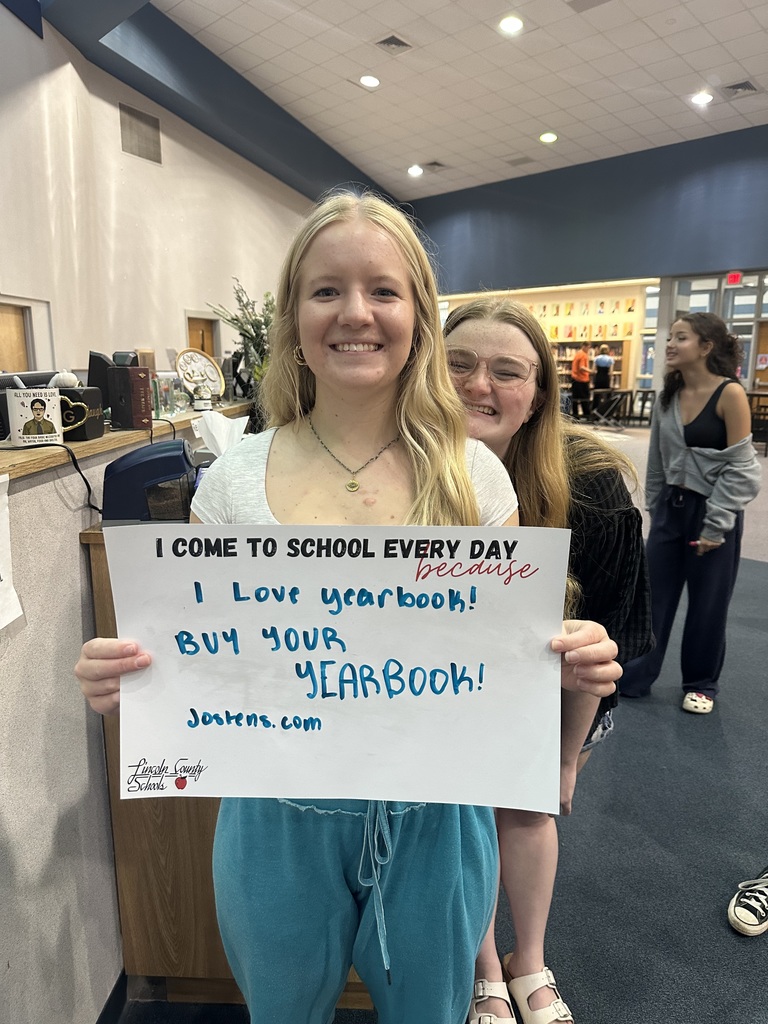 ALL YOU NEED IS LOVE
I COME TO SCHOOL EVERY DAY
because
I Love yearbook!
BUY YOUR
YEARBOOK!
Jostens.com
Lincoln County
Schools